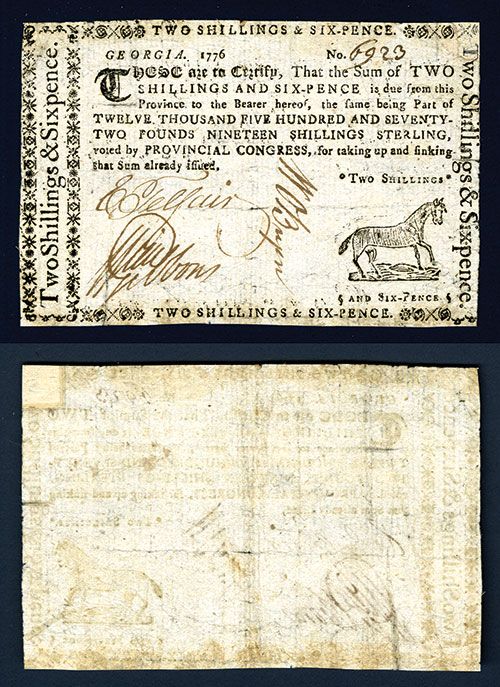 TWO SHILLINGS & SIX-PENCE.
Two Shillings & Sixpence.
GEORGIA. 1776 No. 6923
THESE are to Certify, That the Sum of TWO
SHILLINGS AND SIX-PENCE is due from this
Province to the Bearer hereof, the same being Part of
TWELVE THOUSAND FIVE HUNDRED AND SEVENTY-
TWO POUNDS NINETEEN SHILLINGS STERLING,
voted by PROVINCIAL CONGRESS, for taking up and sinking
that Sum already issued.
Two Shillings
AND SIX-PENCE
Two Shillings, & Sixpence.
TWO SHILLINGS & SIX-PENCE.